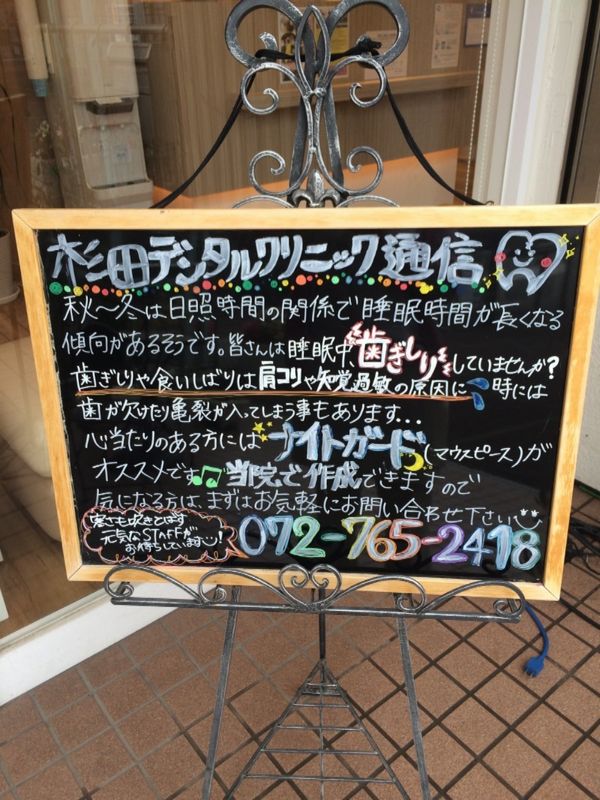 杉田デンタルクリニック通信
秋〜冬は日照時間の関係で睡眠時間が長くなる
傾向があるそうです。皆さんは睡眠中歯ぎしりしていませんか?
歯ぎしりや食いしばりは肩コリや知覚過敏の原因に 時には
歯が欠けたり亀裂が入ってしまう事もあります...
心当たりのある方にはナイトガード(マウスピース)が
オススメです♫当院で作成できますので
気になる方は、まずはお気軽にお問い合わせ下さい
寒さも吹きとばす
元気なSTAFFが
お待ちしていまーす!
072-765-2418